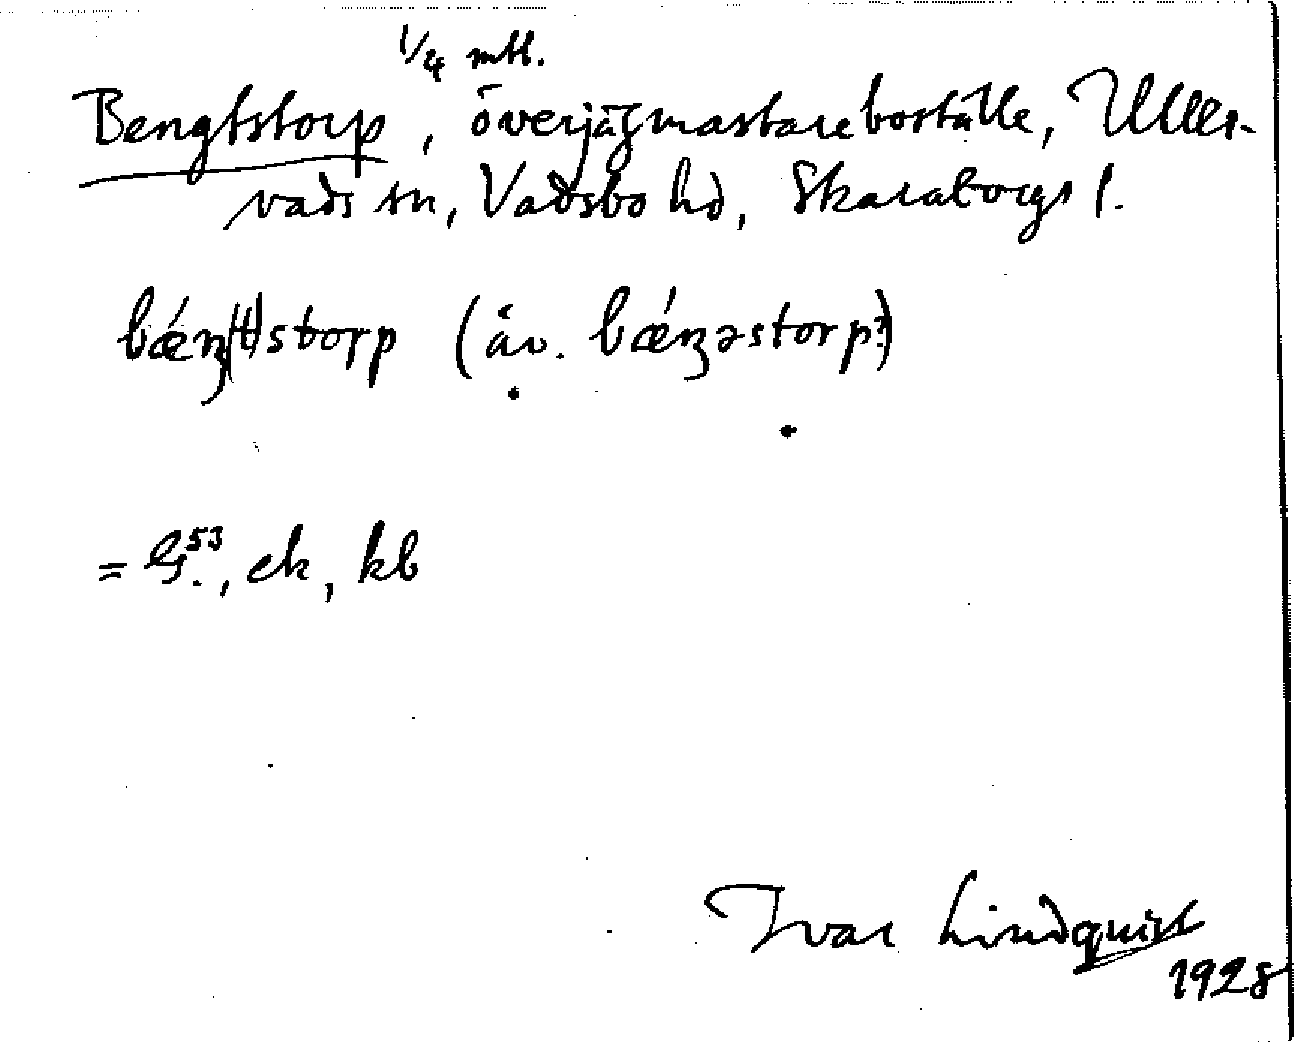 1/4 mtl.
Bengtstorp, överjägmastareboställe, Ullers-
vads sn, Vadsbo hd, Skaraborgs l.
bǽŋ(t)storp (äv. bǽŋəstorp?)
= G.53, ek, kb
Ivar Lindquist
1928